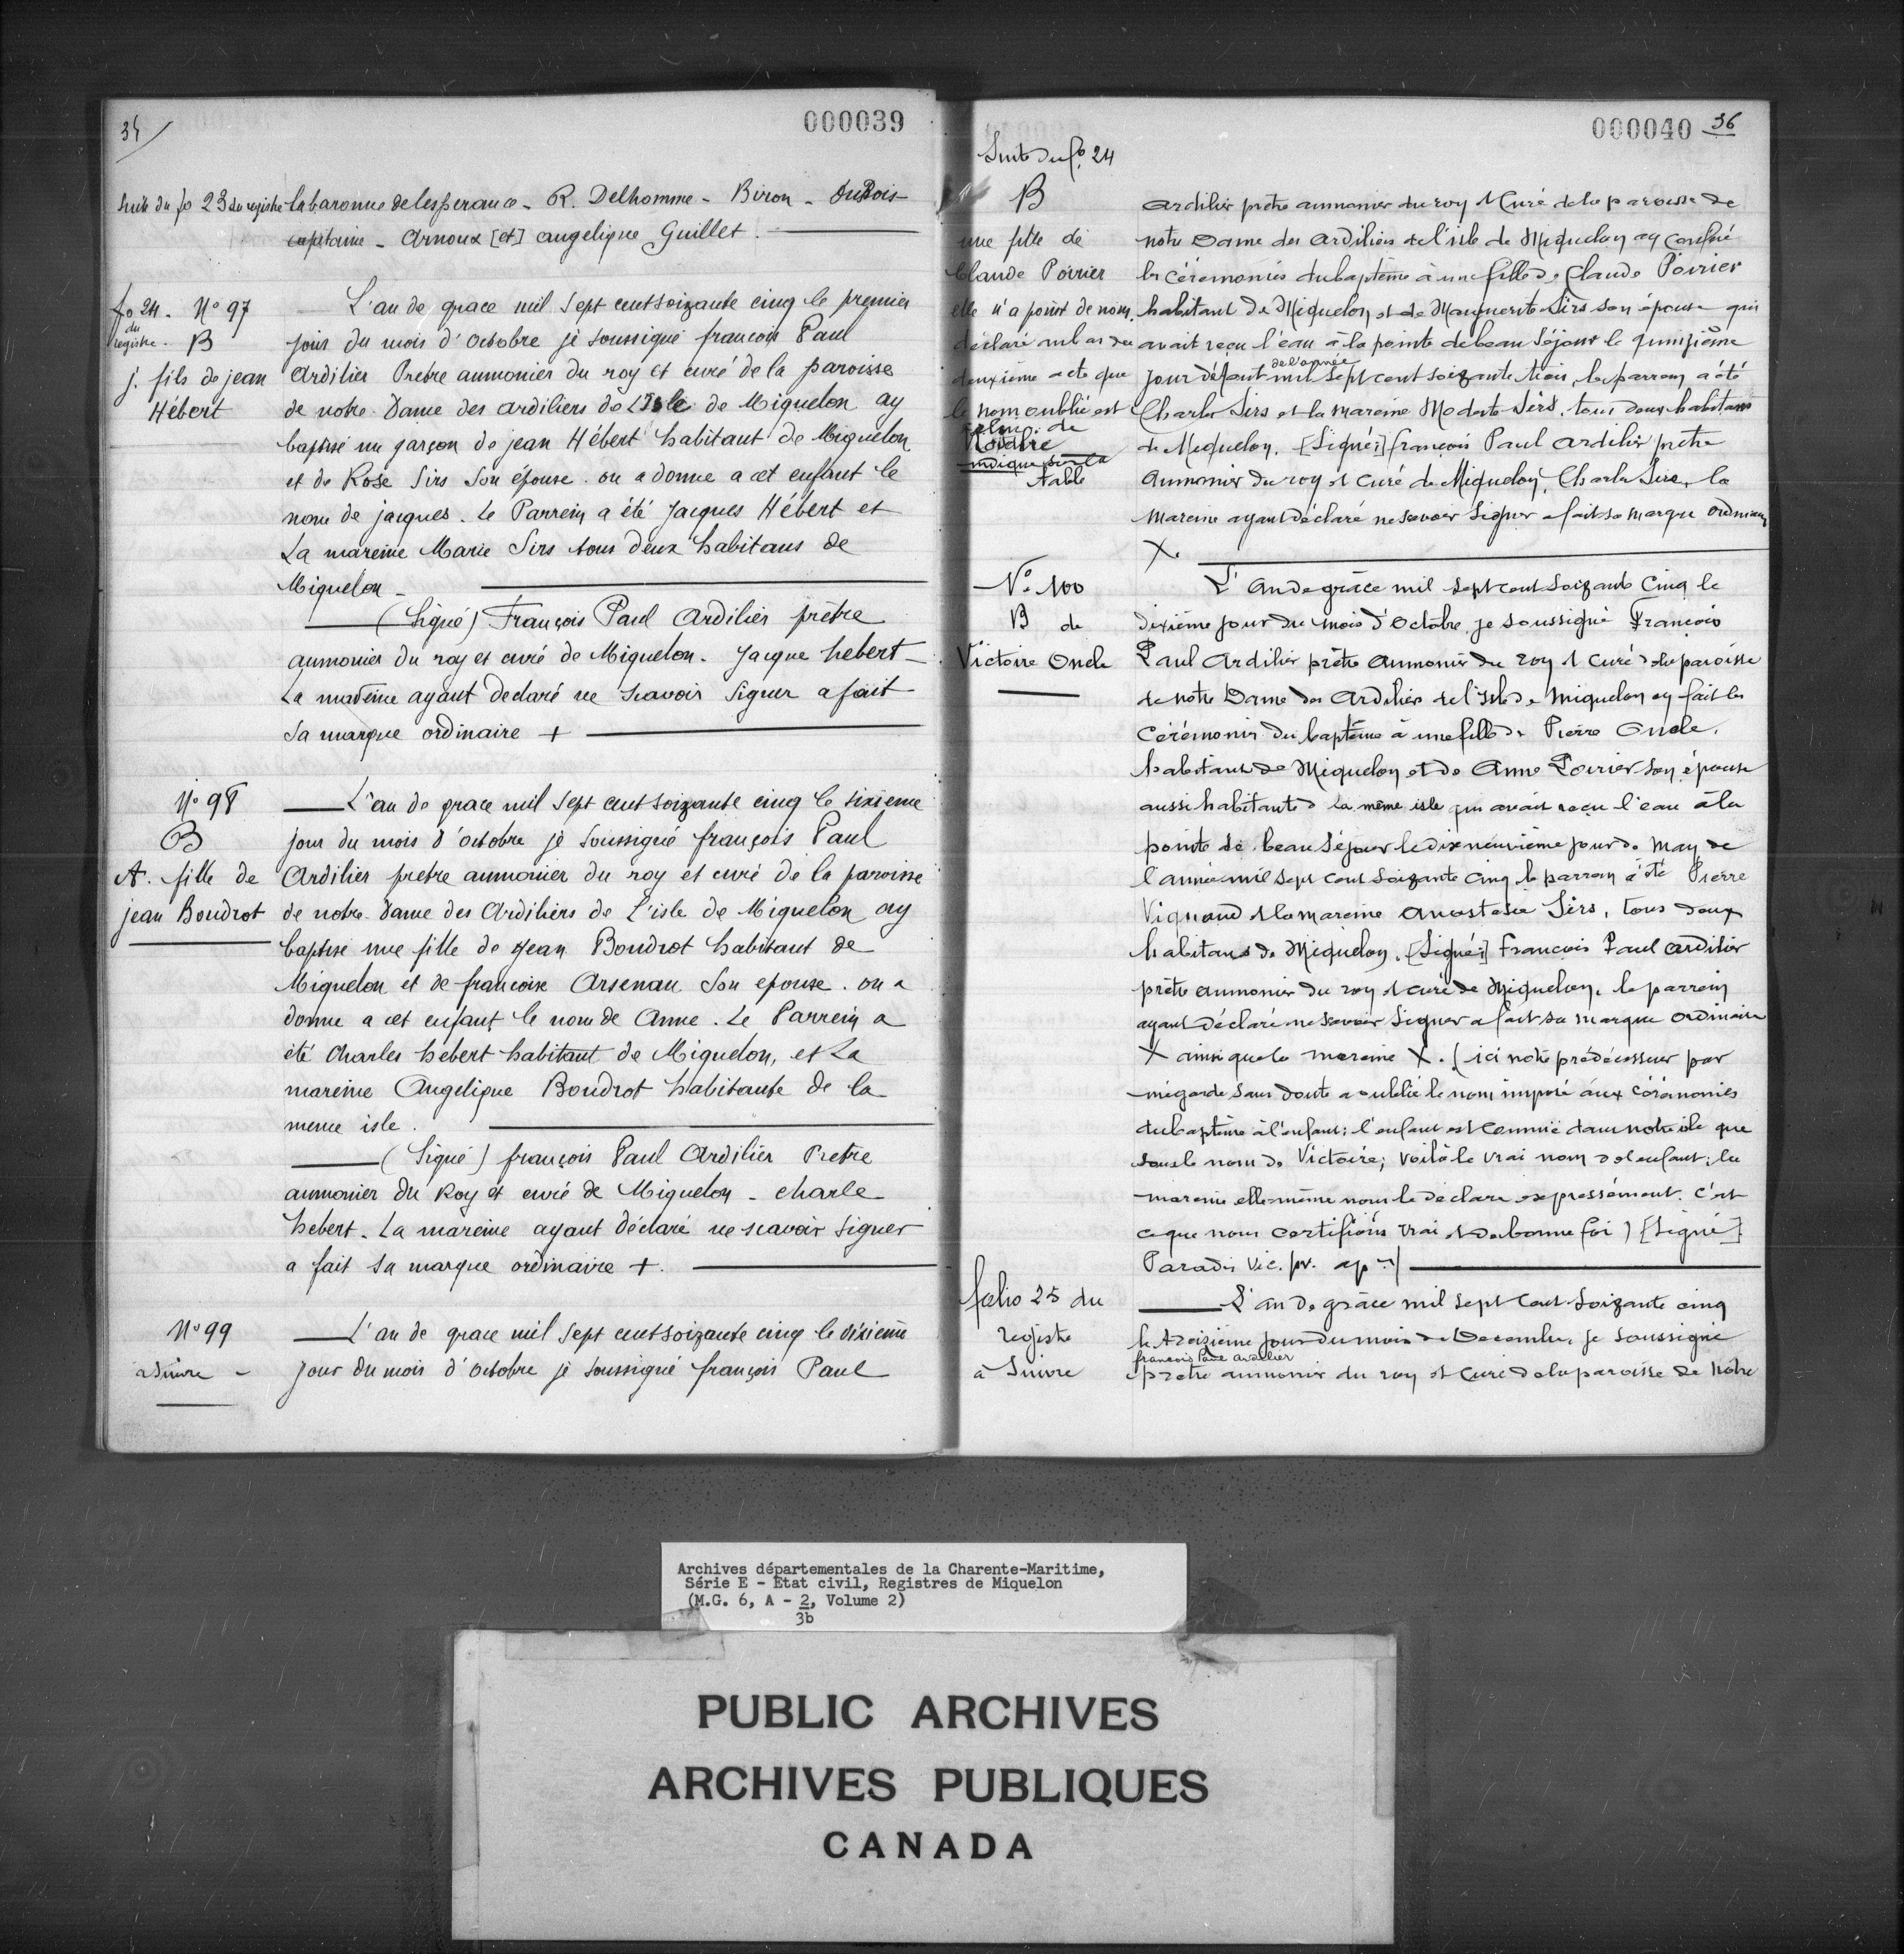 34
000039
Suite du fo 23 du registre la baronne de lesperance - R. Delhomme - Biron - duBois -
capitaine - Arnoux [et] angelique Guillet.
fo 24. No 97
du registre. B
j. fils de jean
Hébert
L'an de grace mil sept cent soizante cinq le premier
jour du mois d'octobre je soussigné françois Paul
Ardilier Prêtre aumonier du roy et curé de la paroisse
de notre Dame des ardiliers de L'Isle de Miquelon ay
baptisé un garçon de jean Hébert habitant de Miquelon
et de Rose Sirs son épouse. on a donné a cet enfant le
nom de jacques. Le Parrein a été Jacques Hébert et
La mareine Marie Sirs tous deux habitans de
Miquelon -
(Signé) François Paul Ardilier prêtre
aumonier du roy et curé de Miquelon. Jacque hebert -
La mareine ayant declaré ne scavoir signer a fait
sa marque ordinaire +
No 98
B
A. fille de
jean Boudrot
L'an de grace mil sept cent soizante cinq le sixieme
jour du mois d'octobre je soussigné françois Paul
Ardilier pretre aumonier du roy et curé de la paroisse
de notre Dame des Ardiliers de L'isle de Miquelon ay
baptisé une fille de Jean Boudrot habitant de
Miquelon et de françoise Arsenau son epouse. on a
donné a cet enfant le nom de Anne. Le Parrein a
été Charles hebert habitant de Miquelon, et La
mareine Angelique Boudrot habitante de la
meme isle.
(Signé) françois Paul Ardilier Pretre
aumonier du Roy et curé de Miquelon - charle
hebert. La mareine ayant déclaré ne scavoir signer
a fait sa marque ordinaire +.
No 99
à suivre -
L'an de grace mil sept cent soizante cinq le dixieme
jour du mois d'octobre je soussigné françois Paul
000040 36
Suite du fo. 24
B
une fille de
Claude Poirier
elle n'a point de nom.
déclaré au bas du
deuxième acte que
le nom oublié est
celui de
indiqué sur la
table
Ardilier prêtre aumonier du roy et Curé de la paroisse de
notre Dame des Ardiliers de l'isle de Miquelon ay
les cérémonies du baptême à une fille de Claude Poirier
habitant de Miquelon et de Marguerite Sirs son épouse qui
avait reçu l'eau à la pointe de beau Séjour le quinzième
jour d'aout de l'année mil sept cent soizante trois, le parrein a été
Charles Sirs et la mareine Modeste Sirs, tous deux habitans
de Miquelon. [Signé:] françois Paul ardilier prêtre
aumonier du roy et curé de Miquelon, Charles Sirs, la
mareine ayant déclaré ne savoir signer a fait sa marque ordinaire
X.
No. 100
B de
Victoire Oncle
L'an de grâce mil sept cent soizante cinq le
dixième jour du mois d'Octobre, je soussigné François
Paul Ardilier prêtre aumonier du roy et curé de la paroisse
de notre Dame des Ardiliers de l'isle de Miquelon ay fait les
cérémonies du baptême à une fille de Pierre Oncle,
habitant de Miquelon et de Anne Poirier son épouse
aussi habitante de la même isle qui avait reçu l'eau à la
pointe de beau séjour le dix neuvième jour de May de
l'année mil sept cent soizante cinq le parrein a été Pierre
Vignaud et la mareine Anastasie Sirs, tous deux
habitans de Miquelon. [Signé:] françois Paul ardilier
prêtre aumonier du roy et curé de Miquelon, le parrein
ayant déclaré ne savoir signer a fait sa marque ordinaire
X ainsi que la mareine X. (ici notre prédécesseur par
mégarde sans doute a oublié le nom imposé aux cérémonies
du baptême à l'enfant; l'enfant est connue dans notre ile que
sous le nom de Victoire; voilà le vrai nom de l'enfant; la
mareine elle-même nous le déclare expressément. C'est
ce que nous certifions vrai et de bonne foi) [Signé]
Paradis Vic. pr. ap.
folio 25 du
registre
à Suivre
L'an de grâce mil sept cent soizante cinq
le treizième jour du mois de Decembre, je soussigné
françois Paul ardilier
prêtre aumonier du roy et curé de la paroisse de Notre
Archives départementales de la Charente-Maritime,
Série E - Etat civil, Registres de Miquelon
(M.G. 6, A - 2, Volume 2)
3b
PUBLIC ARCHIVES
ARCHIVES PUBLIQUES
CANADA